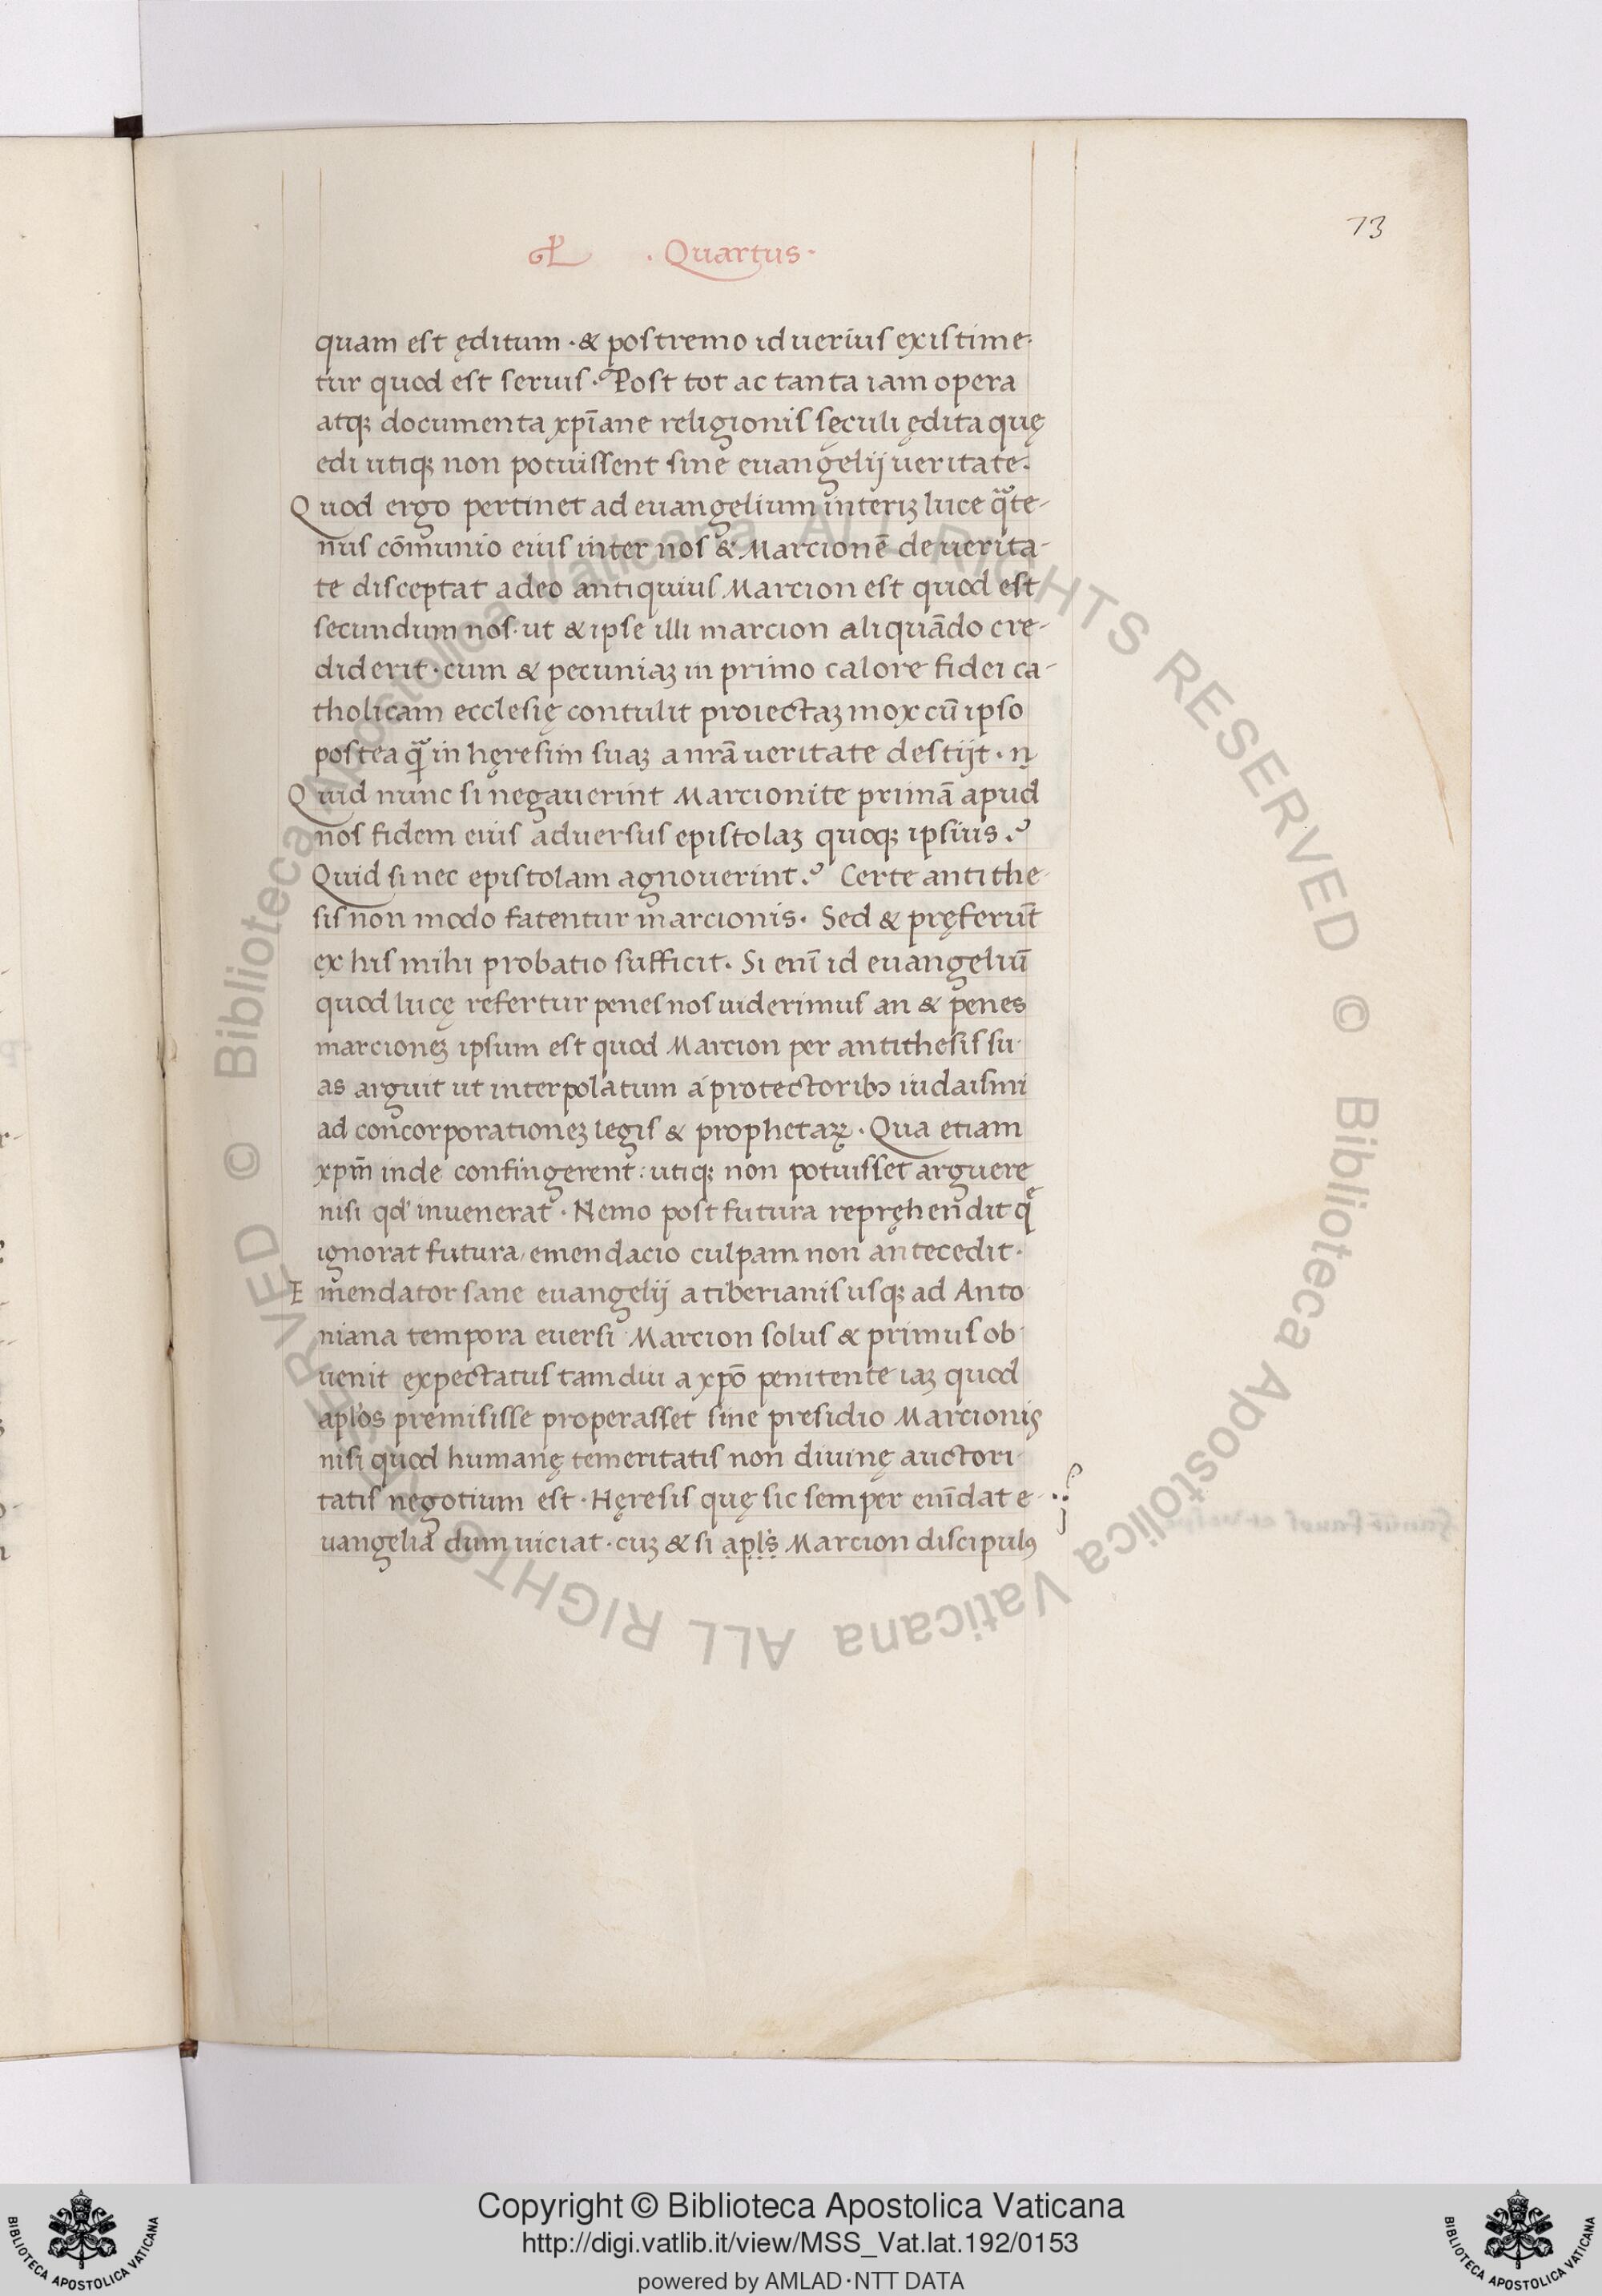 73
. Quartus .
quam est ęditum · & postremo id uerius existime-
tur quod est serius .? Post tot ac tanta iam opera
atq; documenta xp̄iane religionis sęculi ędita quę
edi utiq; non potuissent sine euangelij ueritate.
Quod ergo pertinet ad euangelium interiꝫ luce q̃te-
nus cōmunio eius inter nos & Marcionē de uerita-
te disceptat adeo antiquius Marcion est quod est
secundum nos · ut & ipse illi marcion aliquādo cre-
diderit · cum & pecuniaꝫ in primo calore fidei ca-
tholicam ecclesię contulit proiectaꝫ mox cū ipso
postea q̃ in hęresim suaꝫ a nrā ueritate destijt ·
Quid nunc si negauerint Marcionite primā apud
nos fidem eius aduersus epistolaꝫ quoq; ipsius .?
Quid si nec epistolam agnouerint .? Certe antithe-
sis non modo fatentur marcionis · Sed & pręferūt
ex his mihi probatio sufficit . Si enī id euangeliū
quod lucę refertur penes nos uiderimus an & penes
marcioneꝫ ipsum est quod Marcion per antithesis su-
as arguit ut interpolatum a protectoribꝫ iudaismi
ad concorporationeꝫ legis & prophetaꝝ · Qua etiam
xpm̄ inde confingerent : utiq; non potuisset arguere
nisi qd' inuenerat · Nemo post futura repręhendit qͤ
ignorat futura, emendacio culpam non antecedit ·
Emendator sane euangelij a tiberianis usq; ad Anto-
niana tempora euersi Marcion solus & primus ob-
uenit expectatus tam diu a xpō penitente iaꝫ quod
apl'os premisisse properasset sine presidio Marcionis
nisi quod humanę temeritatis non diuinę auctori-
tatis negotium est · Hęresis quę sic semper enīdat e-
uangelia dum uiciat · cuꝫ & si apl's Marcion discipulꝰ
Copyright © Biblioteca Apostolica Vaticana
http://digi.vatlib.it/view/MSS_Vat.lat.192/0153
powered by AMLAD·NTT DATA
BIBLIOTECA APOSTOLICA VATICANA
BIBLIOTECA APOSTOLICA VATICANA
© Biblioteca Apostolica Vaticana ALL RIGHTS RESERVED © Biblioteca Apostolica Vaticana ALL RIGHTS RESERVED